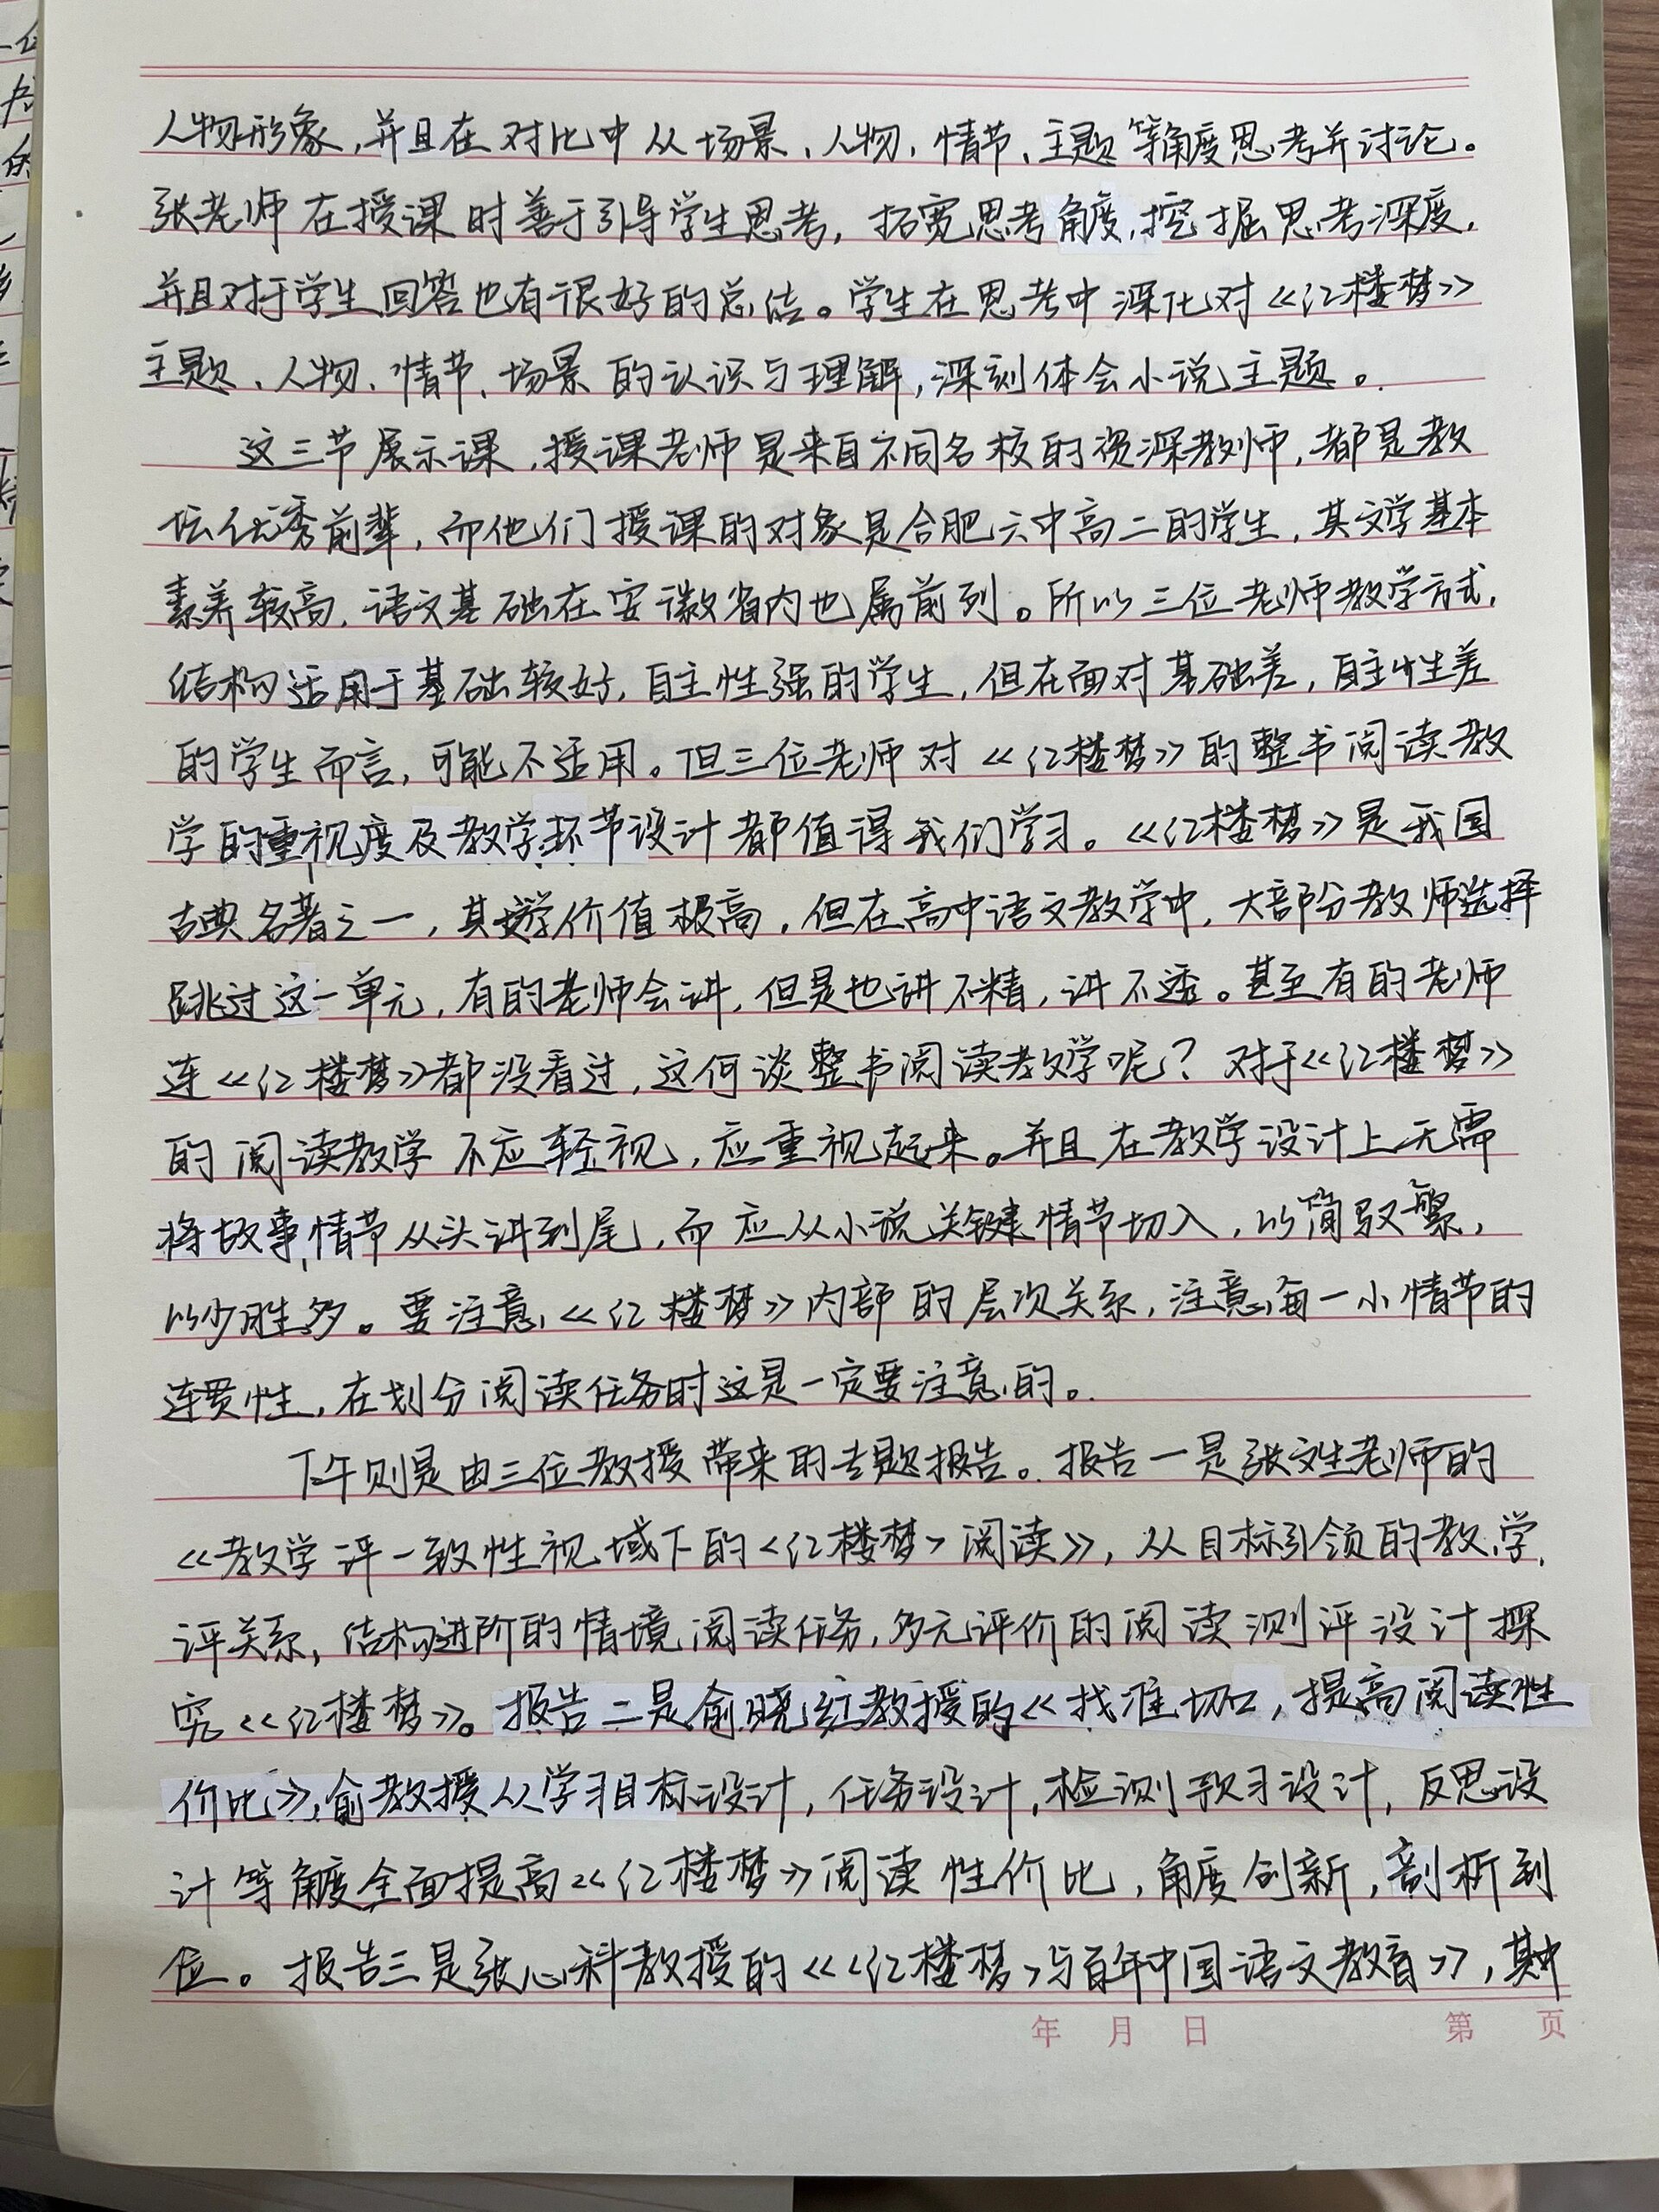 人物形象，并且在对比中从场景、人物、情节、主题等角度思考并讨论。
张老师在授课时善于引导学生思考，拓宽思考角度，挖掘思考深度，
并且对于学生回答也有很好的总结。学生在思考中深化对《红楼梦》
主题、人物、情节、场景的认识与理解，深刻体会小说主题。
这三节展示课，授课老师是来自不同名校的资深教师，都是教
坛优秀前辈，而他们授课的对象是合肥六中高二的学生，其文学基本
素养较高，语文基础在安徽省内也属前列。所以三位老师教学方式，
结构适用于基础较好，自主性强的学生，但在面对基础差，自主性差
的学生而言，可能不适用。但三位老师对《红楼梦》的整书阅读教
学的重视度及教学环节设计都值得我们学习。《红楼梦》是我国
古典名著之一，其文学价值极高，但在高中语文教学中，大部分教师选择
跳过这一单元，有的老师会讲，但是也讲不精，讲不透。甚至有的老师
连《红楼梦》都没看过，这何谈整书阅读教学呢？对于《红楼梦》
的阅读教学不应轻视，应重视起来。并且在教学设计上无需
将故事情节从头讲到尾，而应从小说关键情节切入，以简驭繁，
以少胜多。要注意《红楼梦》内部的层次关系，注意每一小情节的
连贯性，在划分阅读任务时这是一定要注意的。
下午则是由三位教授带来的专题报告。报告一是张文生老师的
《教学评一致性视域下的<红楼梦>阅读》，从目标引领的教、学、
评关系，结构进阶的情境阅读任务，多元评价的阅读测评设计探
究《红楼梦》。报告二是俞晓红教授的《找准切口，提高阅读性
价比》，俞教授从学习目标设计，任务设计，检测预习设计，反思设
计等角度全面提高《红楼梦》阅读性价比，角度创新，剖析到
位。报告三是张心科教授的《<红楼梦>与百年中国语文教育》，其中
年 月 日 第 页